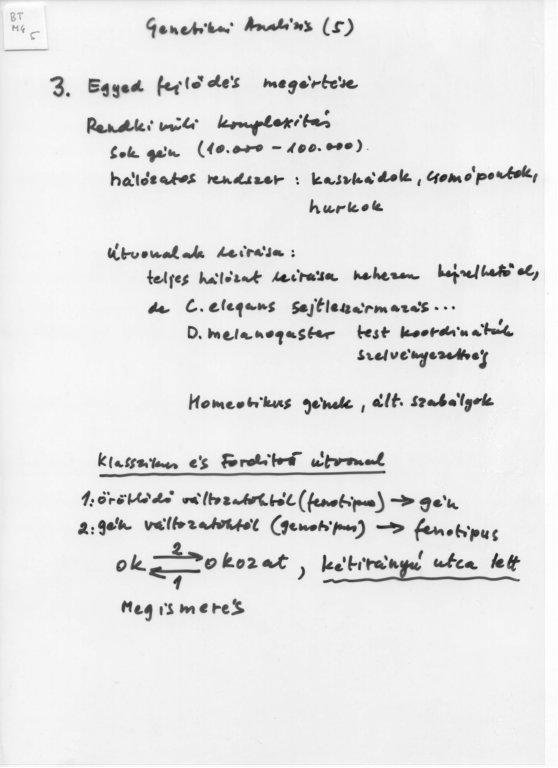 BT
MG
5
Genetikai Analízis (5)
3. Egyed fejlődés megértése
Rendkívüli komplexitás
sok gén (10.000 - 100.000).
hálózatos rendszer : kaszkádok, csomópontok,
hurkok
Útvonalak leírása :
teljes hálózat leírása nehezen képzelhető el,
de C. elegans sejtleszármazás...
D. melanogaster test koordináták
szelvényezettség
Homeotikus gének, ált. szabályok
Klasszikus és Fordított útvonal
1: öröklődő változatoktól (fenotípus) → gén
2: gén változatoktól (genotípus) → fenotípus
2
ok ⇄ okozat, kétirányú utca lett
1
Megismerés